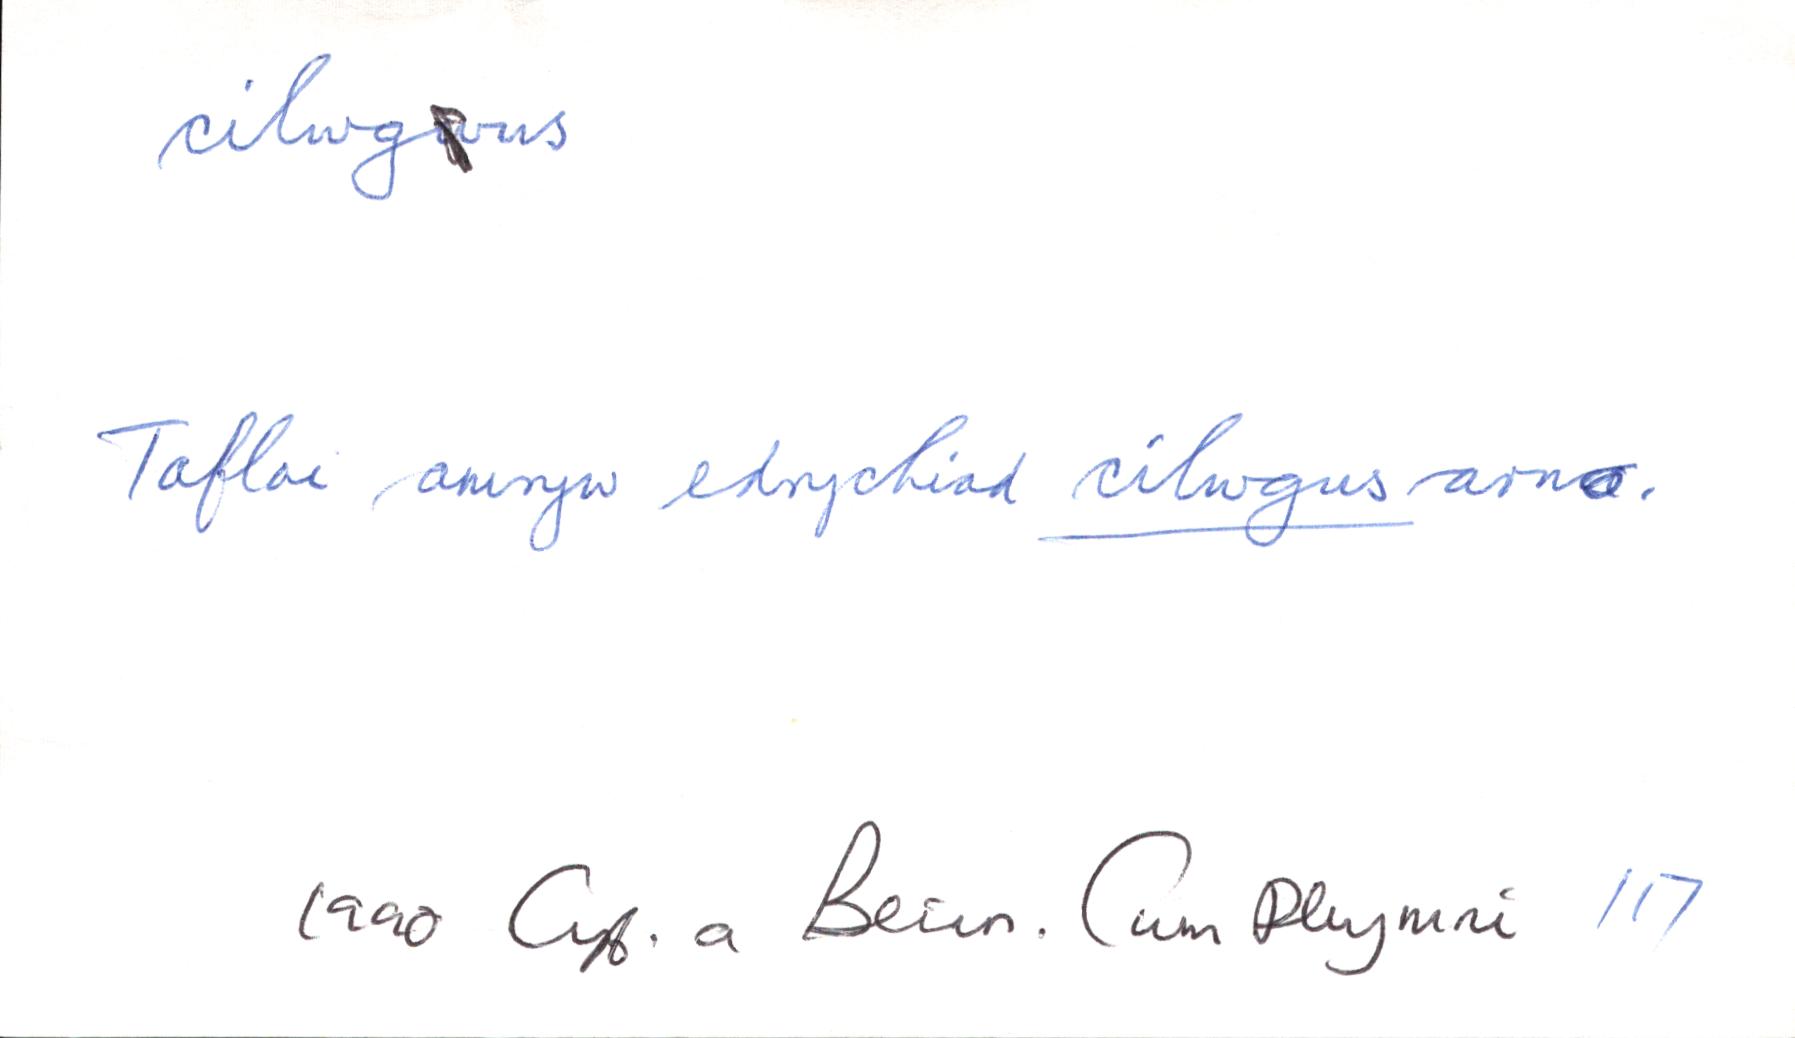 cilwgus
Taflai amryw edrychiad cilwgus arno.
1990 Cyf. a Beirn. Cwm Rhymni 117